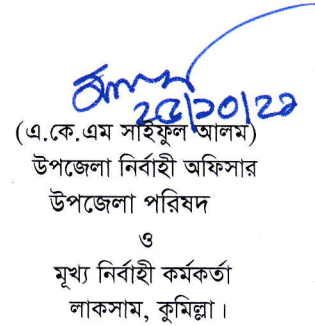 ২৫/১০/২১
(এ.কে.এম সাইফুল আলম)
উপজেলা নির্বাহী অফিসার
উপজেলা পরিষদ
ও
মূখ্য নির্বাহী কর্মকর্তা
লাকসাম, কুমিল্লা।